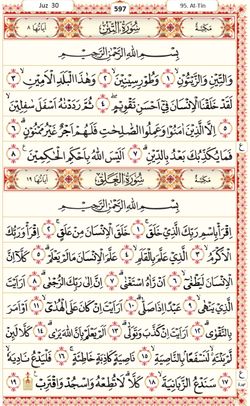 Juz 30 597 95. At-Tin
مكية سورة التين آياتها ٨
بِسْمِ اللهِ الرَّحْمٰنِ الرَّحِيْمِ
وَالتِّيْنِ وَالزَّيْتُوْنِ ۙ ١ وَطُوْرِ سِيْنِيْنَ ۙ ٢ وَهٰذَا الْبَلَدِ الْاَمِيْنِ ۙ ٣
لَقَدْ خَلَقْنَا الْاِنْسَانَ فِيْٓ اَحْسَنِ تَقْوِيْمٍ ۖ ٤ ثُمَّ رَدَدْنٰهُ اَسْفَلَ سٰفِلِيْنَ ۙ
٥ اِلَّا الَّذِيْنَ اٰمَنُوْا وَعَمِلُوا الصّٰلِحٰتِ فَلَهُمْ اَجْرٌ غَيْرُ مَمْنُوْنٍ ۗ ٦
فَمَا يُكَذِّبُكَ بَعْدُ بِالدِّيْنِ ۗ ٧ اَلَيْسَ اللهُ بِاَحْكَمِ الْحٰكِمِيْنَ ٨
مكية سورة العلق آياتها ١٩
بِسْمِ اللهِ الرَّحْمٰنِ الرَّحِيْمِ
اِقْرَأْ بِاسْمِ رَبِّكَ الَّذِيْ خَلَقَ ۚ ١ خَلَقَ الْاِنْسَانَ مِنْ عَلَقٍ ۚ ٢ اِقْرَأْ وَرَبُّكَ
الْاَكْرَمُ ۙ ٣ الَّذِيْ عَلَّمَ بِالْقَلَمِ ۙ ٤ عَلَّمَ الْاِنْسَانَ مَا لَمْ يَعْلَمْ ۗ ٥ كَلَّآ اِنَّ
الْاِنْسَانَ لَيَطْغٰىٓ ۙ ٦ اَنْ رَّاٰهُ اسْتَغْنٰى ۗ ٧ اِنَّ اِلٰى رَبِّكَ الرُّجْعٰى ۗ ٨ اَرَاَيْتَ
الَّذِيْ يَنْهٰى ۙ ٩ عَبْدًا اِذَا صَلّٰى ۗ ١٠ اَرَاَيْتَ اِنْ كَانَ عَلَى الْهُدٰىٓ ۙ ١١ اَوْ اَمَرَ
بِالتَّقْوٰى ۗ ١٢ اَرَاَيْتَ اِنْ كَذَّبَ وَتَوَلّٰى ۗ ١٣ اَلَمْ يَعْلَمْ بِاَنَّ اللهَ يَرٰى ۗ ١٤ كَلَّا
لَىِٕنْ لَّمْ يَنْتَهِ ەۙ لَنَسْفَعًا ۢ بِالنَّاصِيَةِ ۙ ١٥ نَاصِيَةٍ كَاذِبَةٍ خَاطِئَةٍ ۚ ١٦ فَلْيَدْعُ نَادِيَهٗ ۙ
١٧ سَنَدْعُ الزَّبَانِيَةَ ۙ ١٨ كَلَّا ۗ لَا تُطِعْهُ وَاسْجُدْ وَاقْتَرِبْ ۩ ١٩